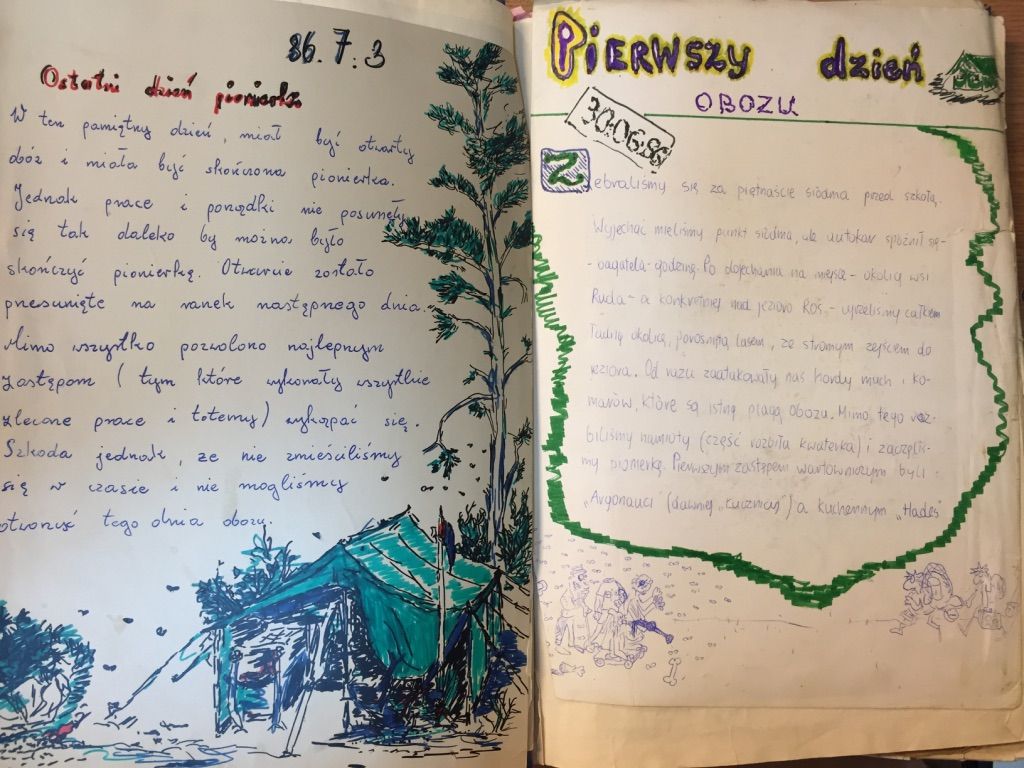 86.7.3
Ostatni dzień pionierka
W ten pamiętny dzień, miał być otwarty
obóz i miała być skończona pionierka.
Jednak prace i porządki nie posunęły
się tak daleko by można było
skończyć pionierkę. Otwarcie zostało
przesunięte na ranek następnego dnia.
Mimo wszystko pozwolono najlepszym
zastępom (tym które wykonały wszystkie
zlecone prace i totemy) wykąpać się.
Szkoda jednak, że nie zmieściliśmy
się w czasie i nie mogliśmy
otworzyć tego dnia obozu.
PIERWSZY dzień
OBOZU
30.06.86
Zebraliśmy się za piętnaście siódma przed szkołą.
Wyjechać mieliśmy punkt siódma, ale autokar spóźnił się -
- bagatela - godzinę. Po dojechaniu na miejsce - okolicę wsi
Ruda - a konkretniej nad jezioro Roś - ujrzeliśmy całkiem
ładną okolicę, porośniętą lasem, ze stromym zejściem do
jeziora. Od razu zaatakowały nas hordy much i ko-
marów, które są istną plagą obozu. Mimo tego roz-
biliśmy namioty (część rozbiła kwaterka) i zaczęliś-
my pionierkę. Pierwszym zastępem wartowniczym byli -
"Argonauci (dawniej "Łucznicy") a kuchennym "Hades"